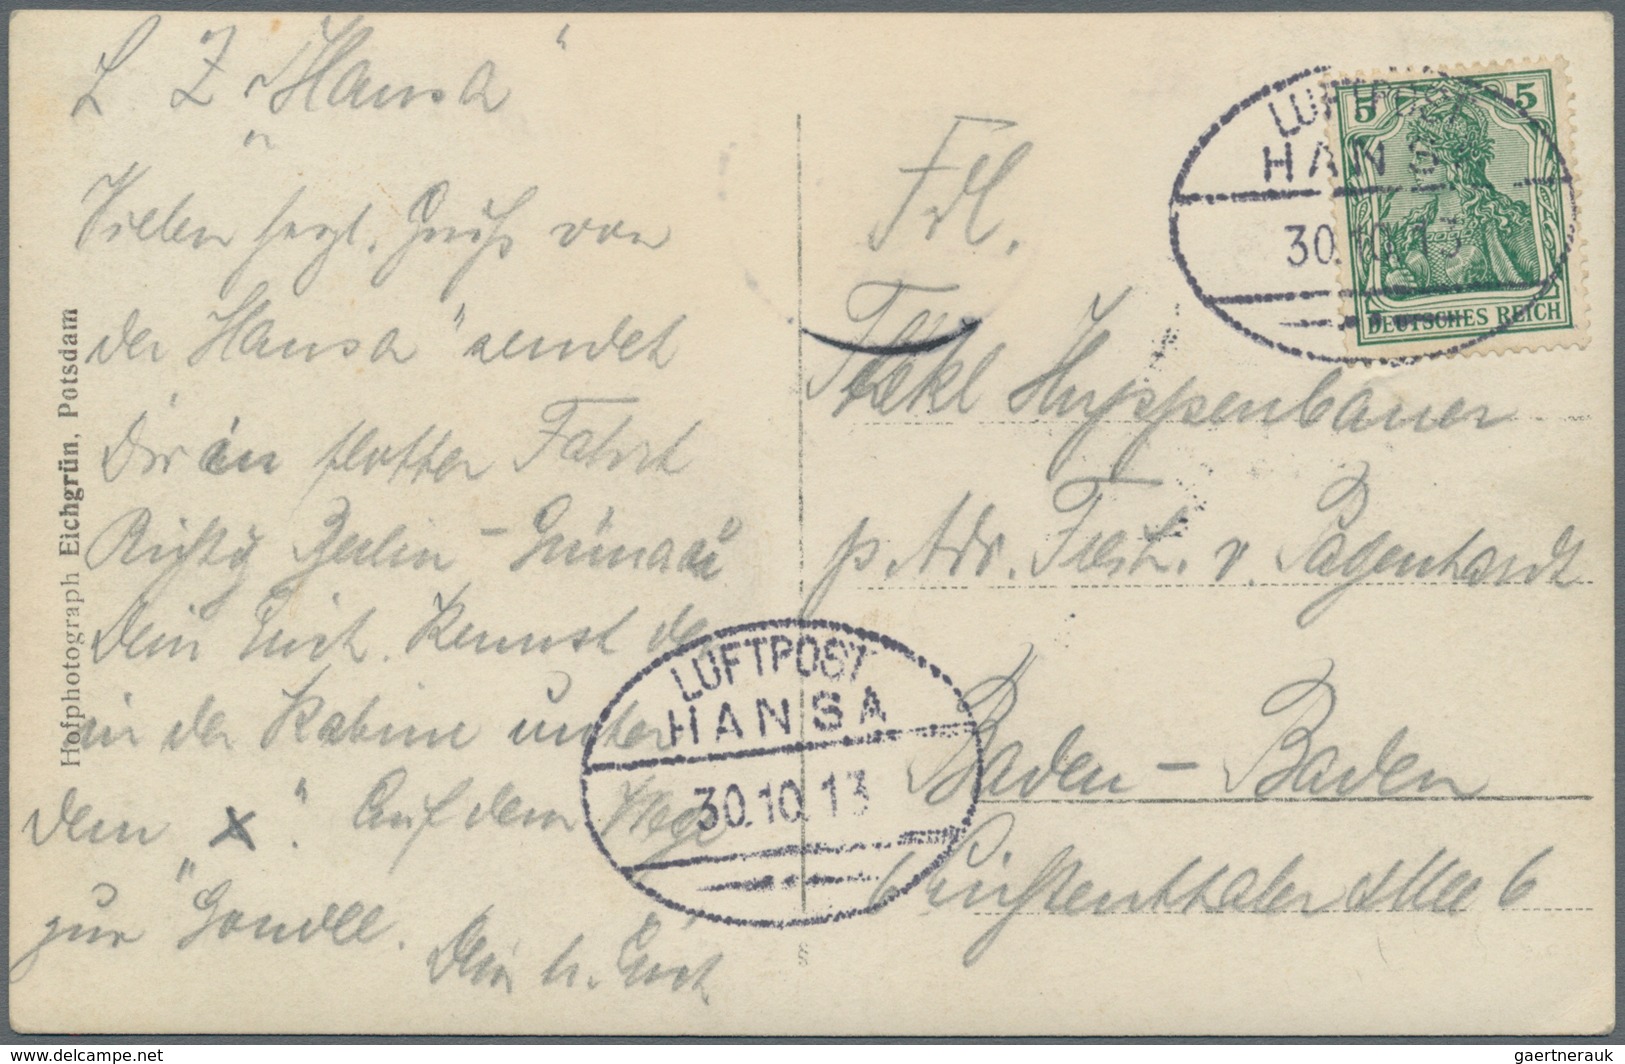 L Z "Hansa"
Vielen herzl. Gruß von
der Hansa" sendet
Dir in flotter Fahrt
Richtg Berlin –
Dein Erich. Kennst du
in der Kabine unter
dem "x". Auf dem Wege
zur Gondel.
Dein h. Erich
Hofphotograph Eichgrün, Potsdam
LUFTPOST
HANSA
30.10.13
5 5
DEUTSCHES REICH
Frl.
Thekl Huppenbauer
p. Adr. Freih. v. Pagenhardt
Baden-Baden
Allee 6
LUFTPOST
HANSA
30.10.13
gaertnerauk